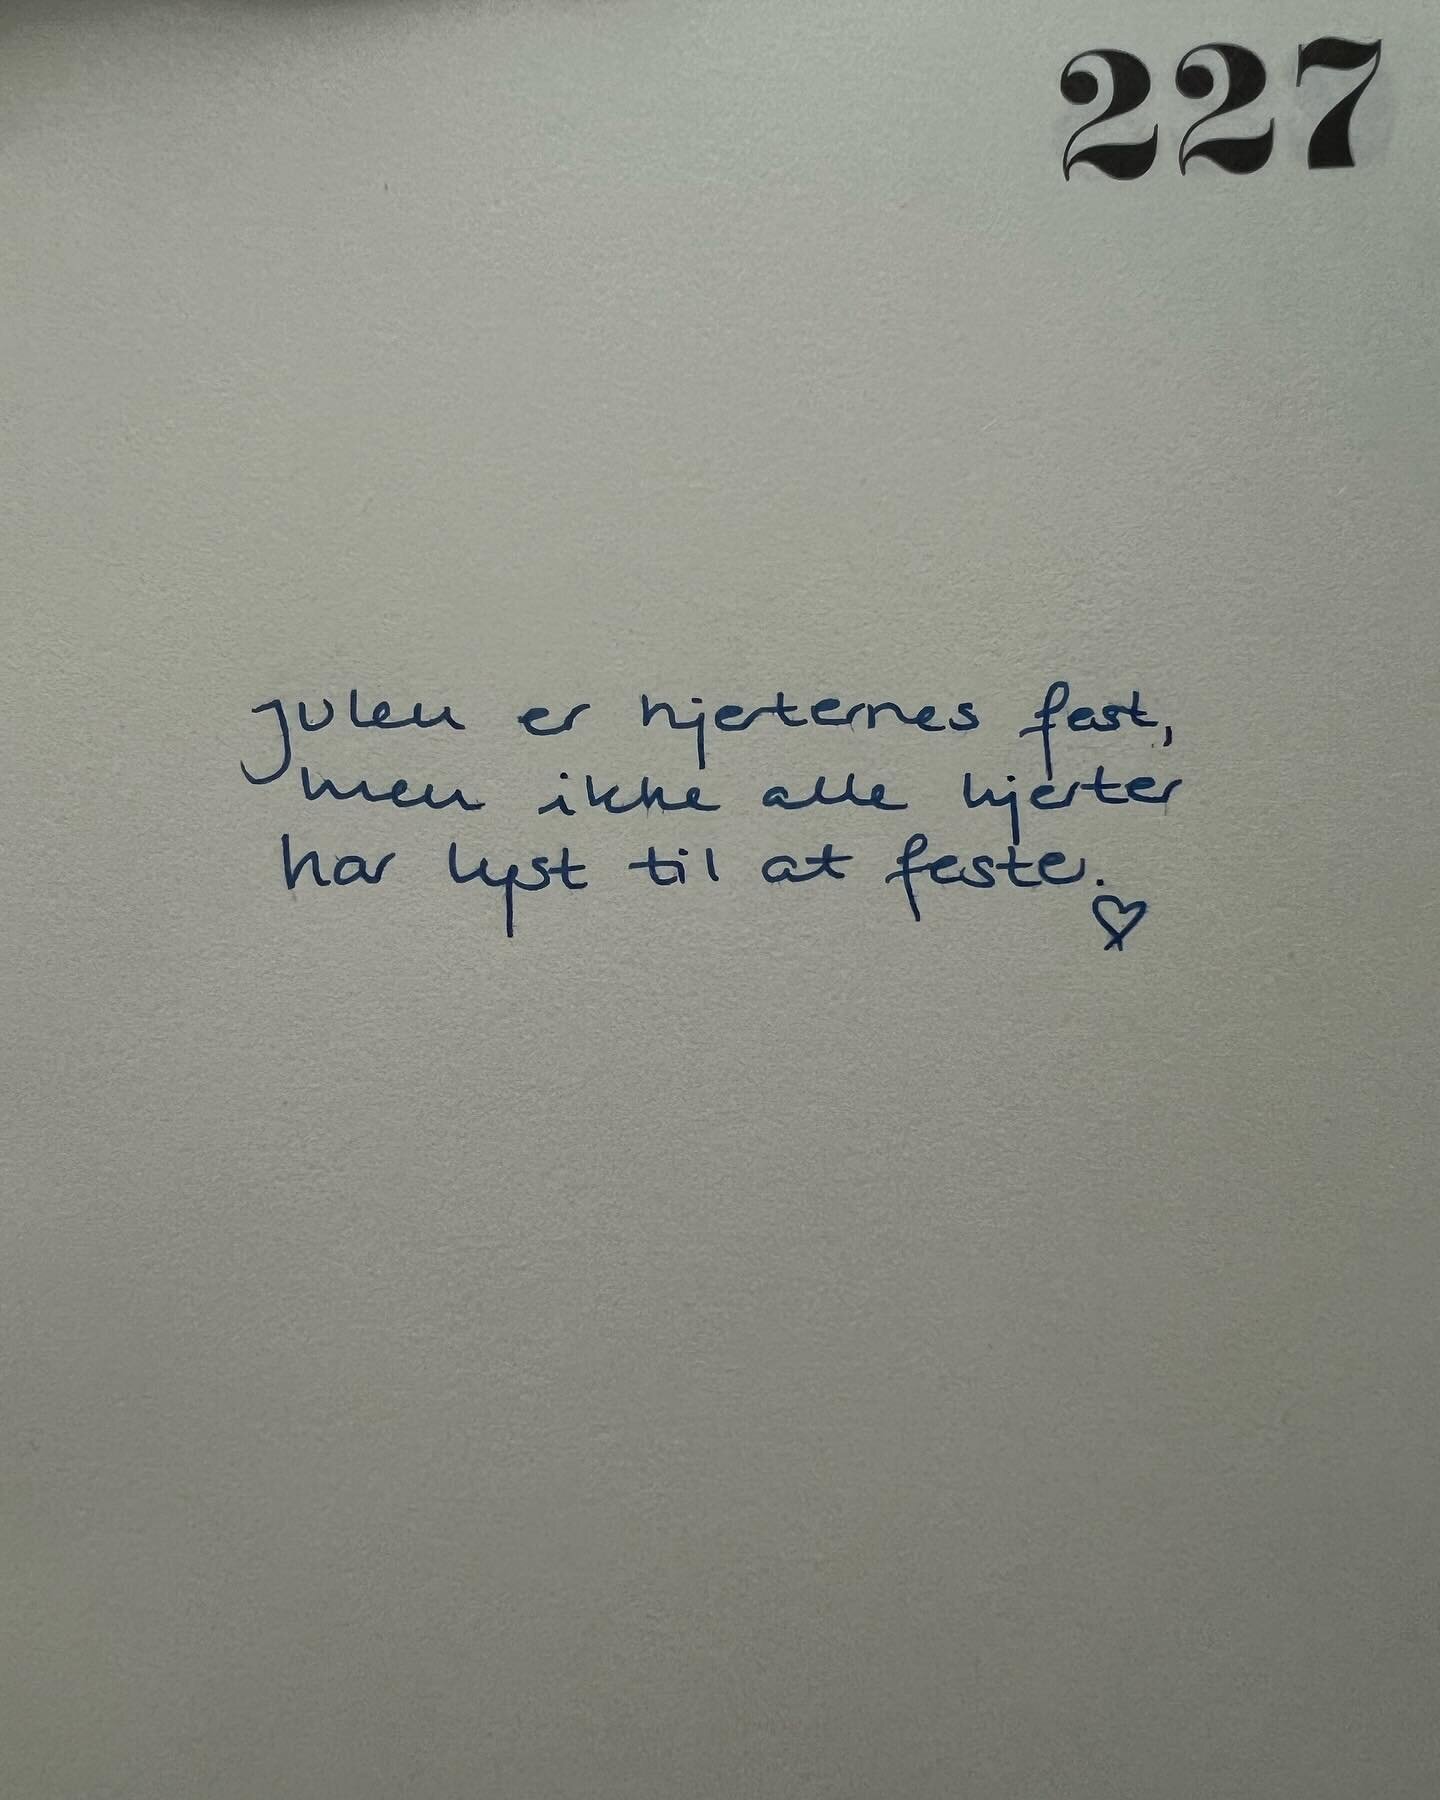 227
Julen er hjerternes fest,
men ikke alle hjerter
har lyst til at feste.